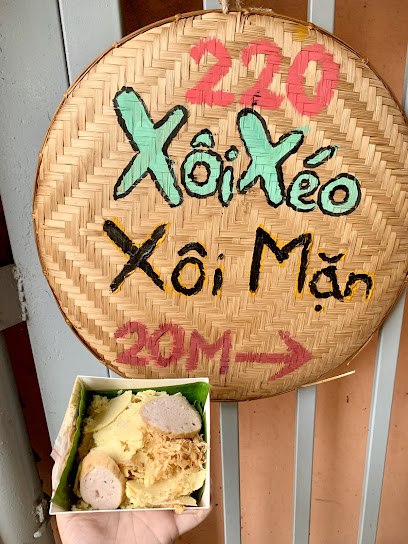 220
Xôi Xéo
Xôi Mặn
20M →